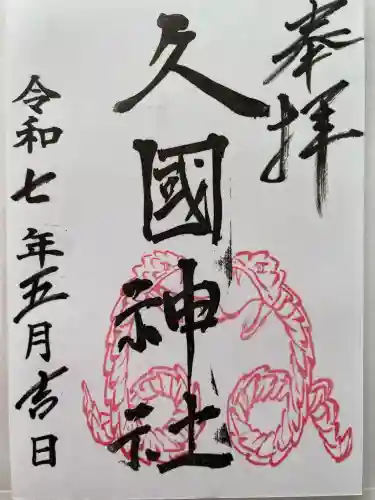 奉拝
久國神社
令和七年五月吉日